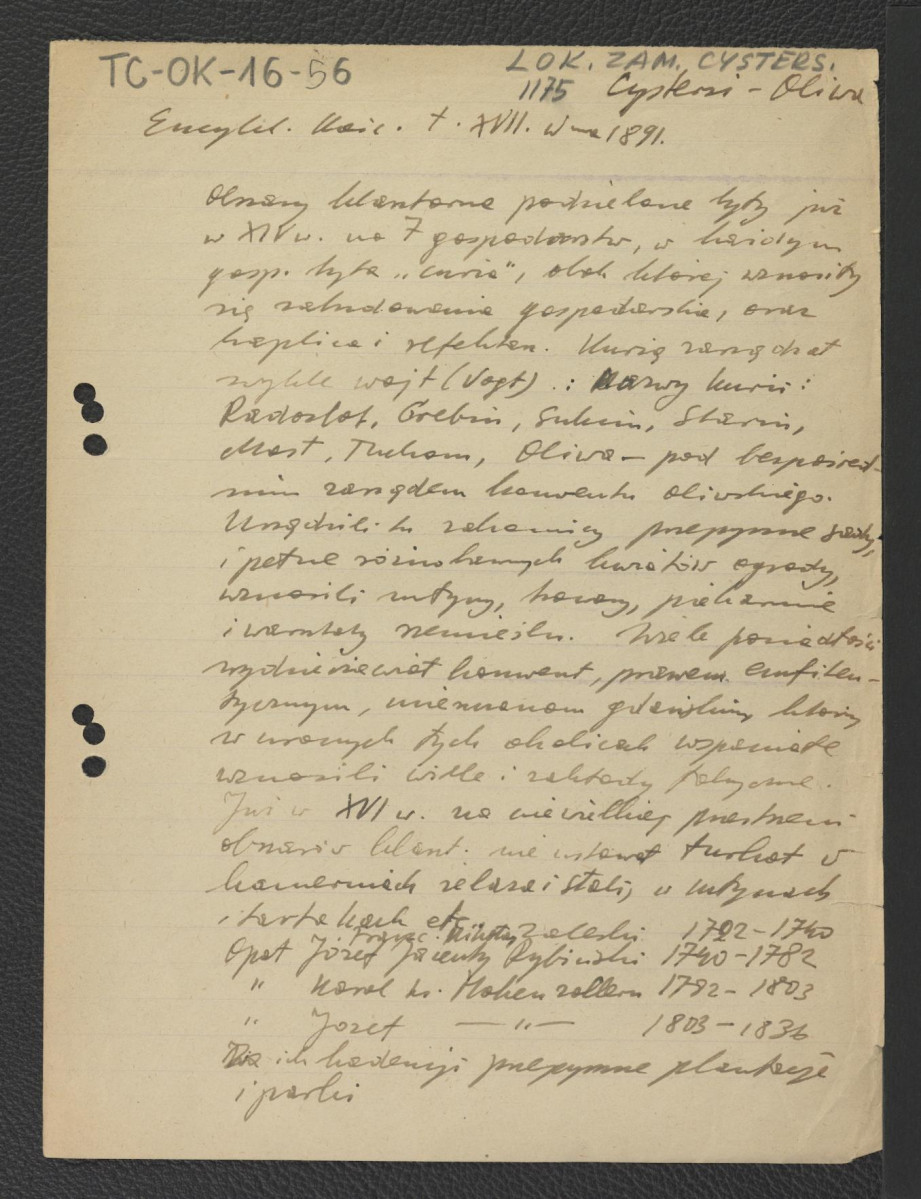 TC-OK-16-56
LOK. ZAM. CYSTERS.
1175 Cystersi - Oliwa
Encykl. Kośc. t. XVII. Wwa 1891.
obszary klasztorne podzielone były już
w XIV w. na 7 gospodarstw, w każdym
gosp. była „curia", obok której wznosiły
się zabudowania gospodarskie, oraz
kaplica i refektarz. Kurią zarządzał
zwykle wójt (Vogt). : Nazwy kurii:
Radostof, Grebin, Sulmin, Starin,
Most, Tuchom, Oliwa - pod bezpośred-
nim zarządem konwentu oliwskiego.
Urządzili tu zakonnicy przepyszne sady,
i pełne różnobarwnych kwiatów ogrody,
wznosili młyny, piekarnie
i warsztaty rzemieśln. Wiele posiadłości
wydzierżawiał konwent, prawem emfiteu-
tycznym, mieszczanom gdańskim, którzy
w uroczych tych okolicach wspaniałe
wznosili wille i zakłady fabryczne.
Już w XVI w. na niewielkiej przestrzeni
obszarów klaszt. nie ustawał turkot w
hamerniach żelaza i stali, w młynach
i tartakach etc.
Franc. Mikołaj Zaleski 1722-1740
Opat Józef Jacenty Rybiński 1740-1782
" Karol ks. Hohenzollern 1782-1803
" Józef — " — 1803-1836
Za ich kadencji przepyszne plantacje
i parki